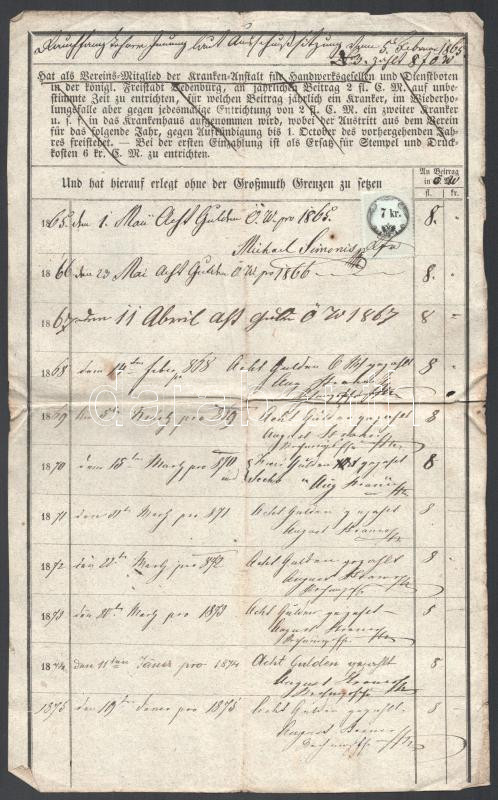 laut Ausschußsitzung vom 5. Februar 1865
Hat als Vereins-Mitglied der Kranken-Anstalt für Handwerksgesellen und Dienstboten
in der königl. Freistadt Oedenburg, an jährlichen Beitrag 2 fl. C. M. auf unbe-
stimmte Zeit zu entrichten, für welchen Beitrag jährlich ein Kranker, im Wiederhol-
lungsfalle aber gegen jedesmalige Entrichtung von 2 fl. C. M. ein zweiter Kranker
u. s. f. in das Krankenhaus aufgenommen wird, wobei der Austritt aus dem Verein
für das folgende Jahr, gegen Aufkündigung bis 1. October des vorhergehenden Jah-
res freistehet. — Bei der ersten Einzahlung ist als Ersatz für Stempel und Druck-
kosten 6 kr. C. M. zu entrichten.
Und hat hierauf erlegt ohne der Großmuth Grenzen zu setzen
An Beitrag
in Ö W
fl. kr.
1865 den 1. Mai Acht Gulden Ö.W. pro 1865. 8. -
7 kr.
Michael Simonis
1866 den 23 Mai Acht Gulden Ö.W. pro 1866 8. -
1867 den 11 April acht Gulden Ö W 1867 8 -
1868 den 14ten Feber pro 868 Acht Gulden gezahlt 8
Aug
1869 den 5ten Martz pro 869 Acht Gulden gezahlt 8
August
1870 dem 15ten Martz pro 870 Gulden gezahlt 8
und Sechs " Aug
1871 den Martz pro 871 Acht Gulden gezahlt 8
August
1872 den 22ten Martz pro 872 Acht Gulden gezahlt 8
August
1873 den Martz pro 1873 Acht Gulden gezahlt 8
August
1874 den 11ten Jäner pro 1874 Acht Gulden gezahlt 8
August
1875 den 19ten Jener pro 1875 Acht Gulden gezahlt. 8
August